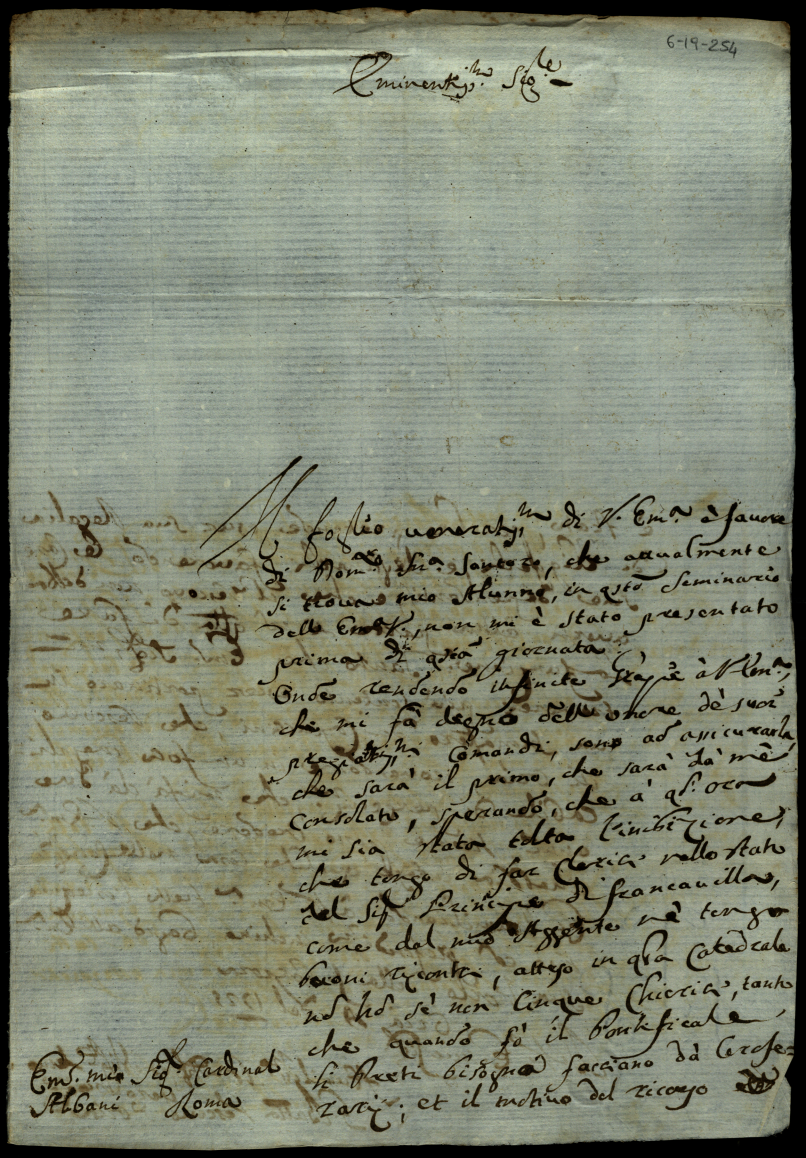 6-19-254
Eminentiss.mo Sig.re
Il foglio veneratiss.mo di V. Em.a à favore
di Dom.co Ant.o Santoro, che attualmente
si trova mio Alunno, in q.sto Seminario
dell' Em. V., non mi è stato presentato
prima di q.sta giornata.
Onde rendendo infinite grazie à V. Em.a,
che mi fà degno dell' onore dè suoi
pregiatiss.mi Comandi, sono ad assicurarla,
che sarà il primo, che sarà dà mè
Consolato, sperando, che à q.st' ora
mi sia stata tolta l'inibizione,
che tengo di far Clerici nello stato
del Sig.r Principe di Francavilla,
come dal mio Aggente nè tengo
buoni riscontri, atteso in q.sta Catedrale
nō hò sè non Cinque Chierici, tanto
che quando fò il Pontificale,
li Preti bisogna facciano dà Cerofe=
rarij; et il motivo del ricorso
Em.o mio Sig.r Cardinal
Albani Roma